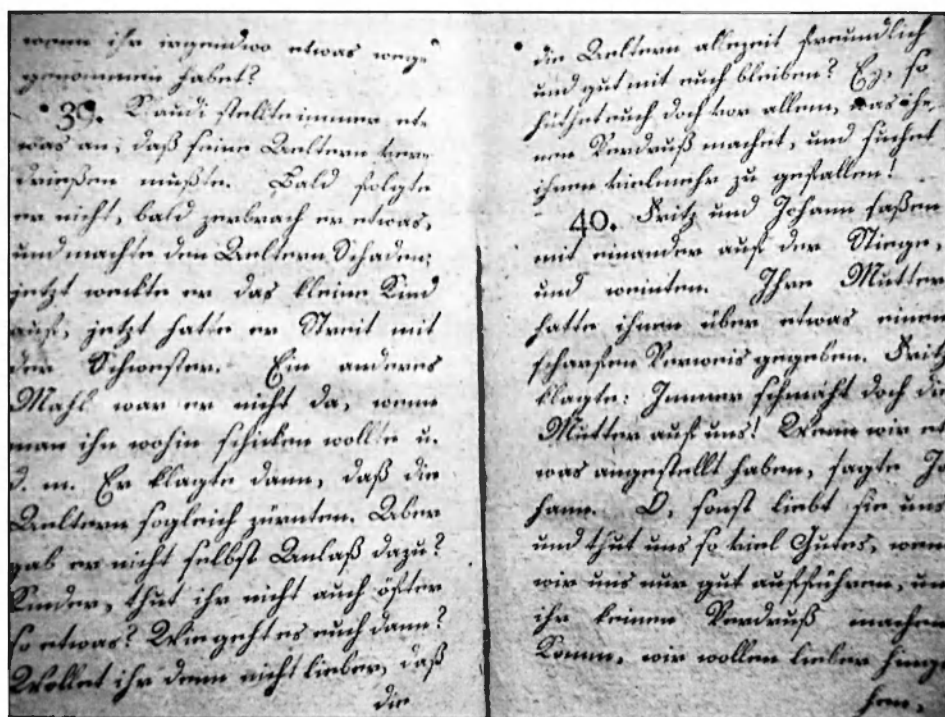 wenn ihr irgendwo etwas weg-
genommen habet?
39. Klaudi stellte immer et-
was an, daß seine Aeltern ver-
drießen mußte. Bald folgte
er nicht, bald zerbrach er etwas,
und machte den Aeltern Schaden;
jetzt weckte er das kleine Kind
auf, jetzt hatte er Streit mit
der Schwester. Ein anderes
Mahl war er nicht da, wenn
man ihn wohin schicken wollte u.
d. m. Er klagte dann, daß die
Aeltern sogleich zürnten. Aber
gab er nicht selbst Anlaß dazu?
Kinder, thut ihr nicht auch öfter
so etwas? Wie geht es euch dann?
Wollet ihr denn nicht lieber, daß
die
die Aeltern allezeit freundlich
und gut mit euch bleiben? Ey, so
hüthet euch doch vor allem, was ih-
nen Verdruß machet, und suchet
ihnen vielmehr zu gefallen!
40. Fritz und Johann saßen
mit einander auf der Stiege,
und weinten. Ihre Mutter
hatte ihnen über etwas einen
scharfen Verweis gegeben. Fritz
klagte: Immer schmäht doch die
Mutter auf uns! Wenn wir et
was angestellt haben, sagte Jo
hann. O, sonst liebt sie uns
und thut uns so viel Gutes, wen
wir uns nur gut aufführen, un
ihr keinen Verdruß machen
Komm, wir wollen lieber hinge
hen,